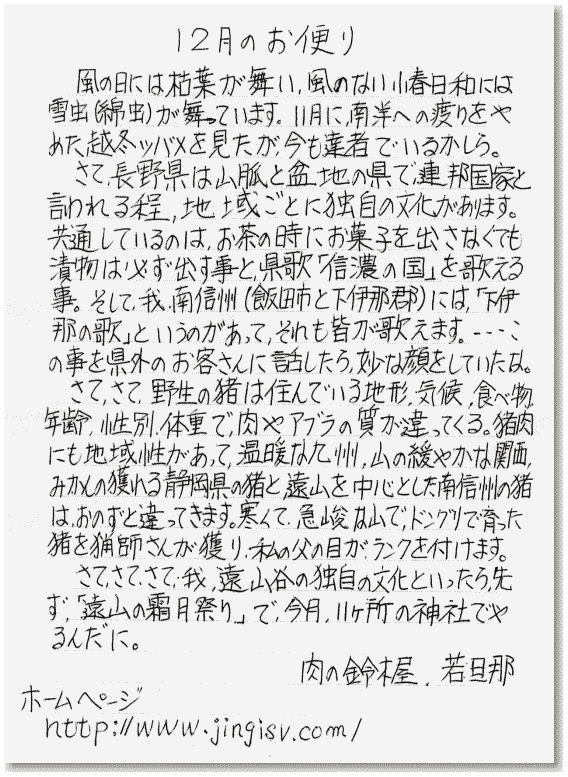 12月のお便り
風の日には枯葉が舞い、風のない小春日和には
雪虫(綿虫)が舞っています。11月に、南洋への渡りをや
めた、越冬ツバメを見たが、今も達者でいるかしら。
さて、長野県は山脈と盆地の県で、連邦国家と
言われる程、地域ごとに独自の文化があります。
共通しているのは、お茶の時にお菓子を出さなくても
漬物は必ず出す事と、県歌「信濃の国」を歌える
事。そして、我、南信州(飯田市と下伊那郡)には、「下伊
那の歌」というのがあって、それも皆が歌えます。---こ
の事を県外のお客さんに話したら、妙な顔をしていたな。
さて、さて、野生の猪は住んでいる地形、気候、食べ物、
年齢、性別、体重で、肉やアブラの質が違ってくる。猪肉
にも地域性があって、温暖な九州、山の緩やかな関西、
みかんの獲れる静岡県の猪と、遠山を中心とした南信州の猪
は、おのずと違ってきます。寒くて、急峻な山で、ドングリで育った
猪を猟師さんが獲り、私の父の目がランクを付けます。
さて、さて、さて、我、遠山谷の独自の文化といったら、先
ず、「遠山の霜月祭り」で、今月、11ヶ所の神社でや
るんだに。
肉の鈴木屋、若旦那
ホームページ
http://www.jingisv.com/